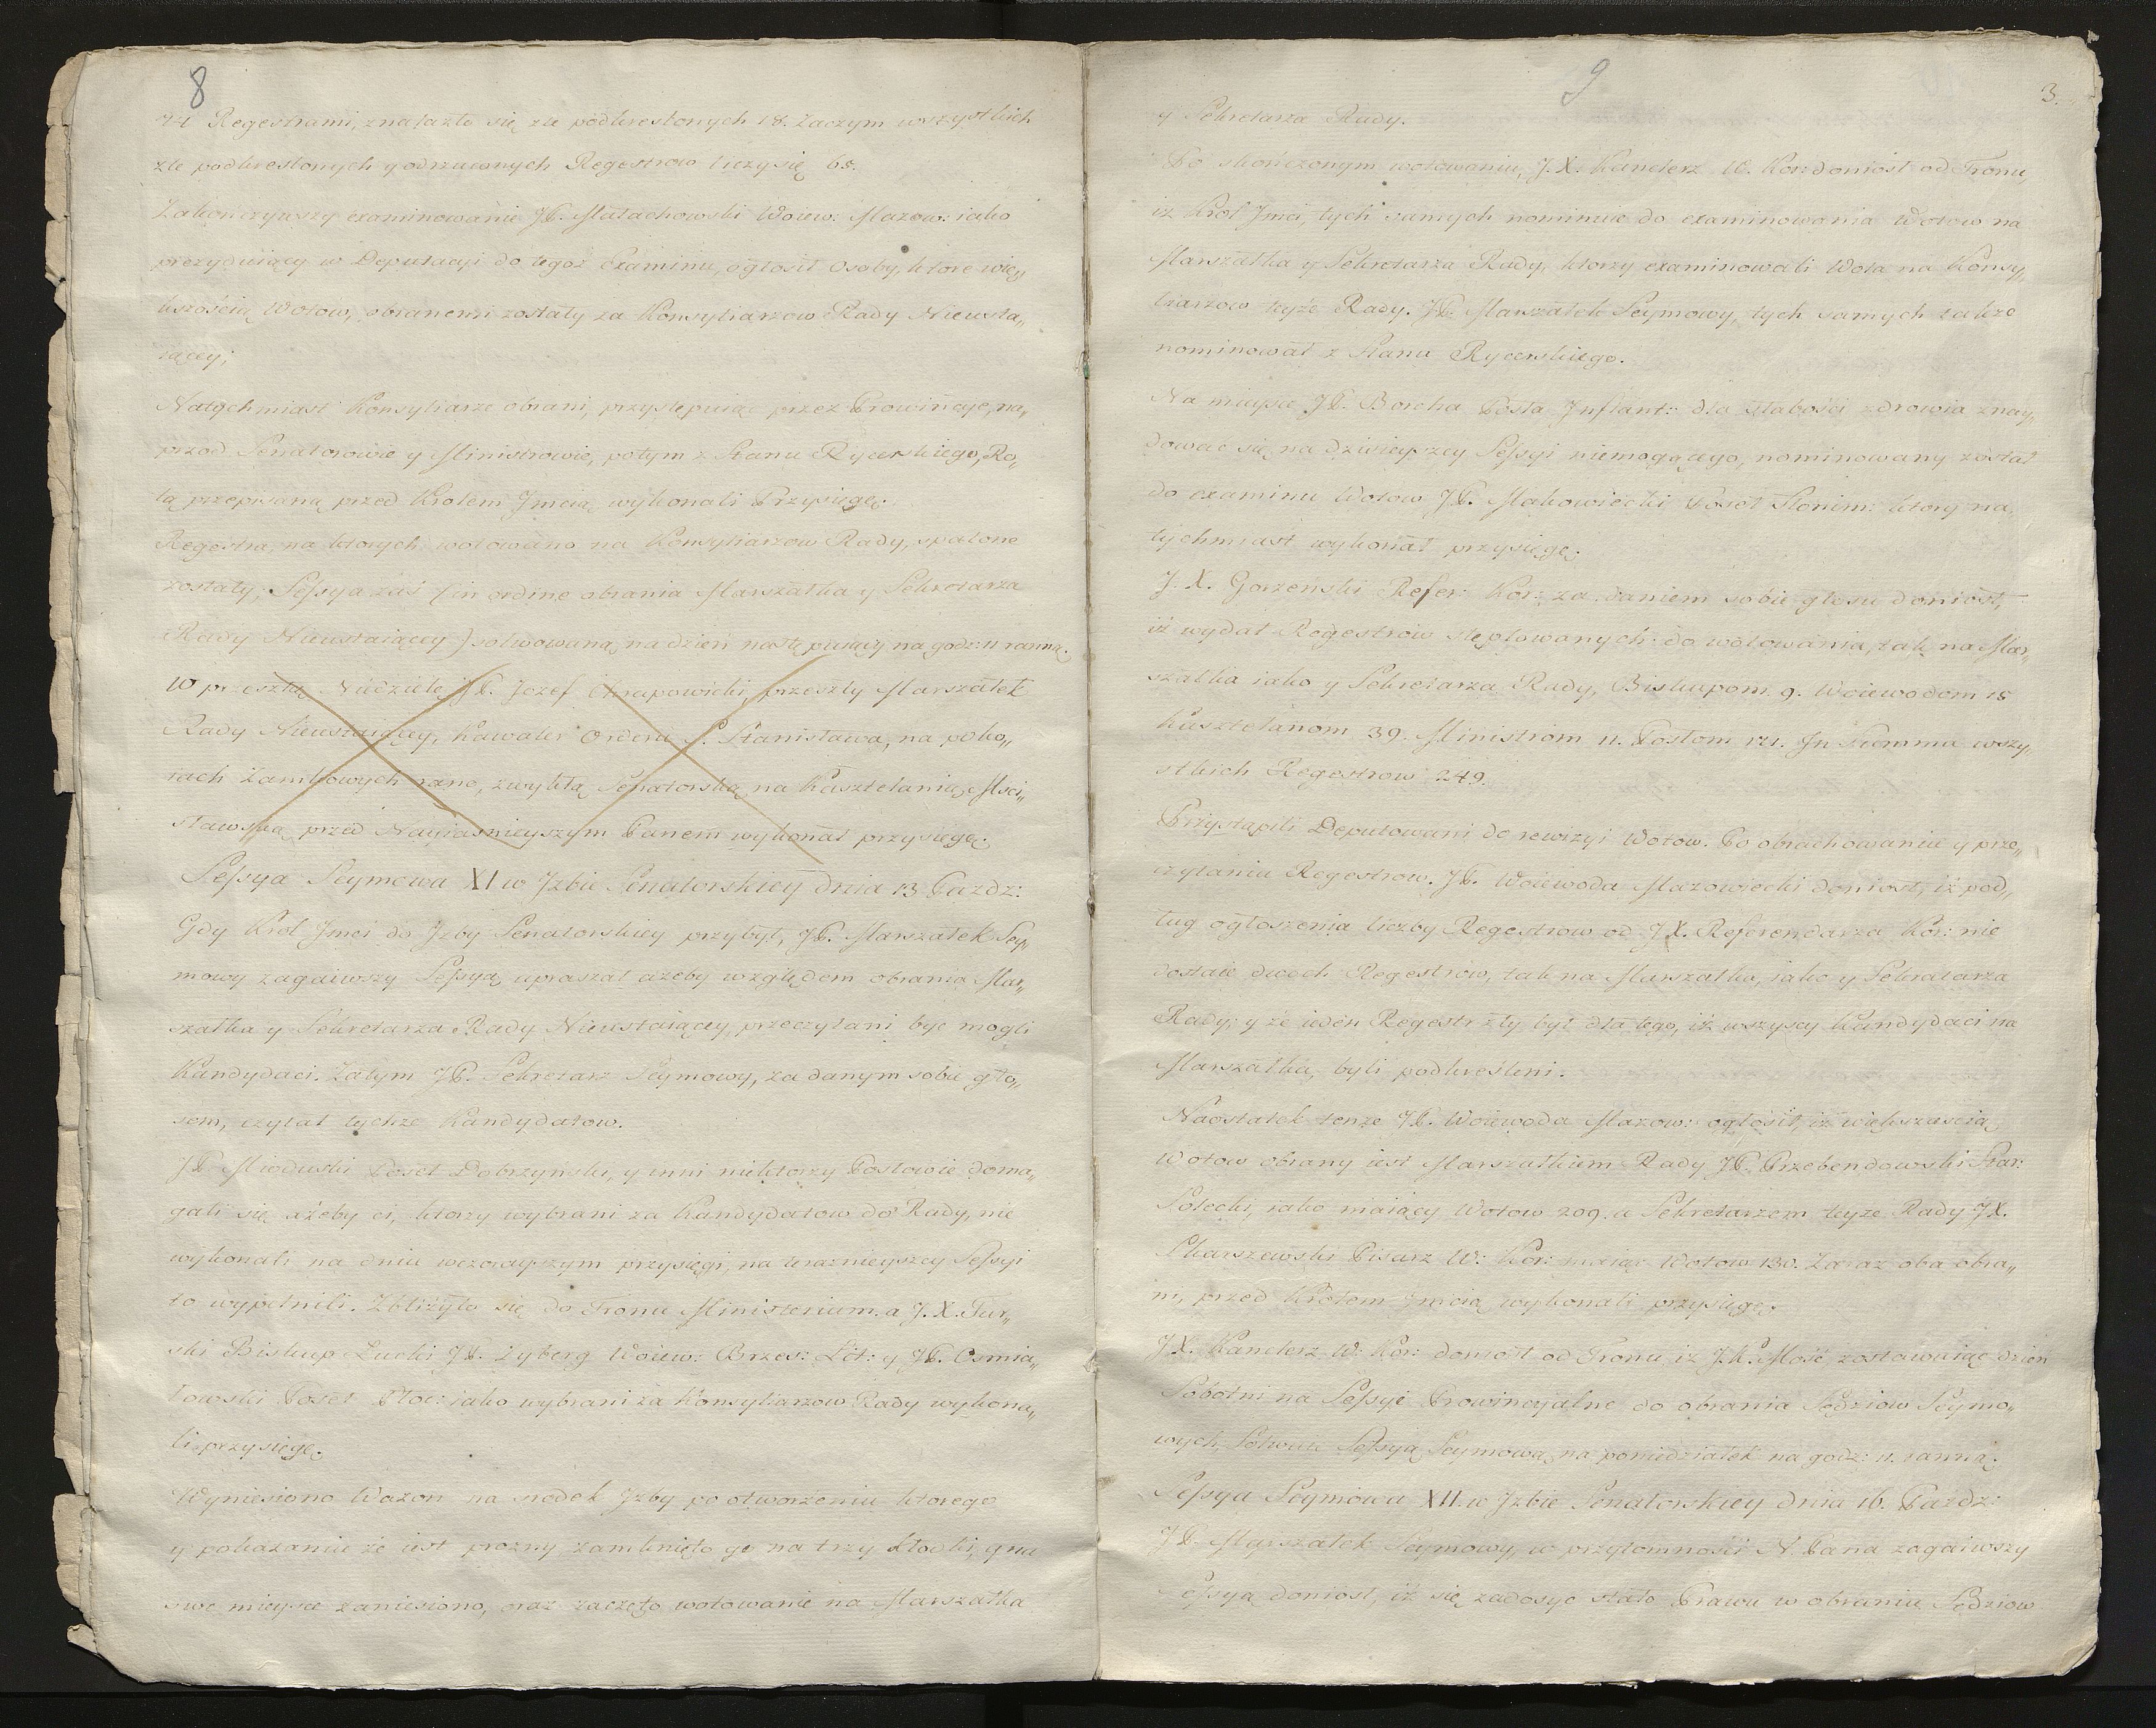 8
74 Regestrami, znalazło się źle podkreslonych 18. Zaczym wszystkich
źle podkreslonych y odrzuconych Regestrow liczy się 65.
Zakończywszy examinowanie JP. Małachowski Woiew: Mazow: iako
prezyduiący w Deputacyi do tegoż Examinu, ogłosił Osoby, ktore więk„
kszością Wotow, obranemi zostały za Konsyliarzow Rady Nieusta„
iącey;
Natychmiast Konsyliarze obrani, przystępuiąc przez Prowincye, na„
przod Senatorowie y Ministrowie, potym z Stanu Rycerskiego, Ro„
tą przepisaną przed Krolem Jmcią wykonali Przysięgę.
Regestra, na ktorych wotowano na Konsyliarzow Rady, spalone
zostały; Sessya zaś (in ordine obrania Marszałka y Sekretarza
Rady Nieustaiącey) solwowana na dzien następuiący na godz: 11 ranną.
W przeszłą Niedzielę JP. Jozef Chrapowicki przeszły Marszałek
Rady Nieustaiącey, Kawaler Orderu S. Stanisława, na poko„
iach Zamkowych rano, zwykłą Senatorską na Kasztelanią Msci„
sławską przed Nayiasnieyszym Panem wykonał przysięgę.
Sessya Seymowa XI w Izbie Senatorskiey dnia 13 Pazdz:
Gdy Krol Jmci do Izby Senatorskiey przybył, JP. Marszałek Sey„
mowy zagaiwszy Sessyą upraszał ażeby względem obrania Mar„
szałka y Sekretarza Rady Nieustaiącey przeczytani być mogli
Kandydaci. Zatym JP. Sekretarz Seymowy, za danym sobie gło„
sem, czytał tychże Kandydatow.
JP Mioduski Poseł Dobrzyński, y inni niektorzy Posłowie doma„
gali się ażeby ci, ktorzy wybrani za Kandydatow do Rady, nie
wykonali na dniu wczorayszym przysięgi, na teraznieyszey Sessyi
to wypełnili. Zbliżyło się do Tronu Ministerium. a J. X. Tur„
ski Biskup Łucki JP. Zyberg Woiew: Brzes: Lit: y JP. Osmia„
łowski Poseł Płoc: iako wybrani za Konsyliarzow Rady wykona„
li przysięgę.
Wyniesiono Wazon na srodek Izby po otworzeniu ktorego
y pokazaniu że iest prozny zamknięto go na trzy kłodki, y na
swe mieysce zaniesiono, oraz zaczęto wotowanie na Marszałka
9
3.
y Sekretarza Rady.
Po skończonym wotowaniu, J. X. Kanclerz W. Kor: doniosł od Tronu,
iz Krol Jmci, tych samych nominuie do examinowania Wotow na
Marszałka y Sekretarza Rady, ktorzy examinowali Wota na Konsy„
liarzow teyże Rady. JP. Marszałek Seymowy, tych samych także
nominował z Stanu Rycerskiego.
Na mieysce JP. Borcha Posła Inflant: dla słabości zdrowia znay„
dować się na dzisieyszey Sessyi niemogącego, nominowany został
do examinu Wotow JP. Makowiecki Poseł Słonim: ktory na„
tychmiast wykonał przysięgę.
J. X. Gorzeński Refer: Kor: za daniem sobie głosu doniosł,
iż wydał Regestrow stęplowanych do wotowania, tak na Mar„
szałka iako y Sekretarza Rady, Biskupom 9. Woiewodom 18
Kasztelanom 39. Ministrom 11. Posłom 171. In Summa wszy„
stkich Regestrow 249.
Przystąpili Deputowani do rewizyi Wotow. Po obrachowaniu y prze„
czytaniu Regestrow. JP. Woiewoda Mazowiecki doniosł, iż pod„
ług ogłoszenia liczby Regestrow od J X. Referendarza Kor: nie
dostaie dwoch Regestrow, tak na Marszałka, iako y Sekretarza
Rady; y że ieden Regestr zły był dla tego, iż wszyscy Kandydaci na
Marszałka, byli podkreśleni.
Naostatek tenże JP. Woiewoda Mazow: ogłosił, iż większością
Wotow obrany iest Marszałkiem Rady JP. Przebendowski Star:
Solecki, iako maiący Wotow 209. a Sekretarzem teyże Rady JX.
Skarszewski Pisarz W: Kor: maiąc Wotow 130. Zaraz oba obra„
ni, przed Krolem Jmcią wykonali przysięgę.
JX. Kanclerz W: Kor: doniosł od Tronu, iz J. K. Mość zostawuiąc dzień
Sobotni na Sessye Prowincyalne do obrania Sędziow Seymo„
wych, Solwuie Sessyą Seymową na poniedziałek na godz: 11. ranną.
Sessya Seymowa XII. w Izbie Senatorskiey dnia 16. Pazdz:
JP. Marszałek Seymowy, w przytomności N. Pana zagaiwszy
Sessyą doniosł, iż się zadosyć stało Prawu w obraniu Sędziow